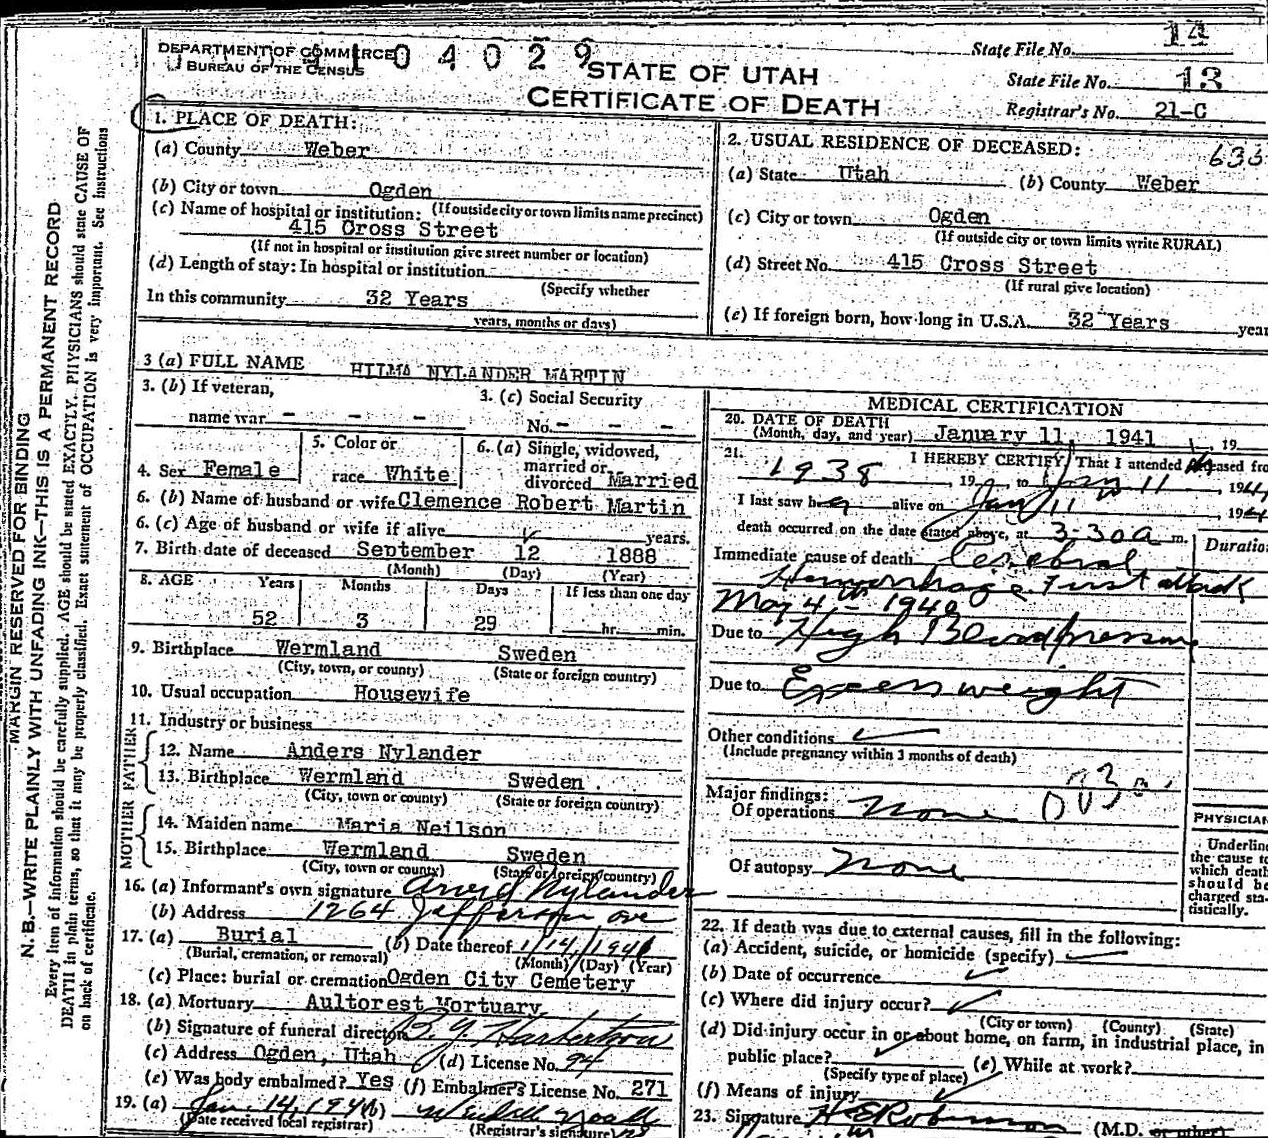 DEPARTMENT OF COMMERCE
BUREAU OF THE CENSUS
04029
STATE OF UTAH
CERTIFICATE OF DEATH
State File No. 14
State File No. 13
Registrar's No. 21-C
1. PLACE OF DEATH:
(a) County Weber
(b) City or town Ogden
(If outside city or town limits name precinct)
(c) Name of hospital or institution:
415 Cross Street
(If not in hospital or institution give street number or location)
(d) Length of stay: In hospital or institution
(Specify whether
In this community 32 Years
years, months or days)
2. USUAL RESIDENCE OF DECEASED:
633
(a) State Utah (b) County Weber
(c) City or town Ogden
(If outside city or town limits write RURAL)
(d) Street No. 415 Cross Street
(If rural give location)
(e) If foreign born, how long in U.S.A. 32 Years year
3 (a) FULL NAME HILMA NYLANDER MARTIN
3. (b) If veteran,
name war - - -
3. (c) Social Security
No. - - -
4. Sex Female
5. Color or
race White
6. (a) Single, widowed,
married or
divorced Married
6. (b) Name of husband or wife Clemence Robert Martin
6. (c) Age of husband or wife if alive years.
7. Birth date of deceased September 12 1888
(Month) (Day) (Year)
8. AGE Years Months Days If less than one day
52 3 29 hr. min.
9. Birthplace Wermland Sweden
(City, town, or county) (State or foreign country)
10. Usual occupation Housewife
11. Industry or business
FATHER
12. Name Anders Nylander
13. Birthplace Wermland Sweden
(City, town or county) (State or foreign country)
MOTHER
14. Maiden name Maria Neilson
15. Birthplace Wermland Sweden
(City, town or county) (State or foreign country)
16. (a) Informant's own signature Arvid Nylander
(b) Address 1264 Jefferson ave
17. (a) Burial (b) Date thereof 1/14/1941
(Burial, cremation, or removal) (Month) (Day) (Year)
(c) Place: burial or cremation Ogden City Cemetery
18. (a) Mortuary Aultorest Mortuary
(b) Signature of funeral director
(c) Address Ogden, Utah (d) License No. 94
(e) Was body embalmed? Yes (f) Embalmer's License No. 271
19. (a) Jan. 14, 1941 (b)
(Date received local registrar) (Registrar's signature)
MEDICAL CERTIFICATION
20. DATE OF DEATH
(Month, day, and year) January 11, 1941, 19
21. I HEREBY CERTIFY, That I attended deceased fro
1938, 19, to Jan 11, 1941
I last saw her alive on Jan 11 1941
death occurred on the date stated above, at 3-30 a m.
Duratio
Immediate cause of death Cerebral
Hemorrhage First attack
May 4th - 1940
Due to High Blood pressure
Due to Excess weight
Other conditions
(Include pregnancy within 3 months of death)
Major findings:
Of operations None
Of autopsy None
PHYSICIAN
Underline
the cause to
which death
should be
charged sta-
tistically.
22. If death was due to external causes, fill in the following:
(a) Accident, suicide, or homicide (specify)
(b) Date of occurrence
(c) Where did injury occur?
(City or town) (County) (State)
(d) Did injury occur in or about home, on farm, in industrial place, in
public place? (e) While at work?
(Specify type of place)
(f) Means of injury
23. Signature (M.D. or other)
MARGIN RESERVED FOR BINDING
N. B.—WRITE PLAINLY WITH UNFADING INK—THIS IS A PERMANENT RECORD
Every item of information should be carefully supplied. AGE should be stated EXACTLY. PHYSICIANS should state CAUSE OF
DEATH in plain terms, so that it may be properly classified. Exact statement of OCCUPATION is very important. See instructions
on back of certificate.